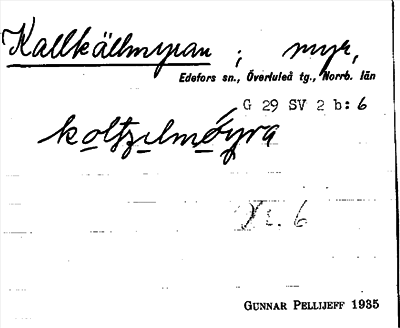 Kallkällmyran ; myr,
Edefors sn., Överluleå tg., Norrb. län
G 29 SV 2 b: 6
GUNNAR PELLIJEFF 1935